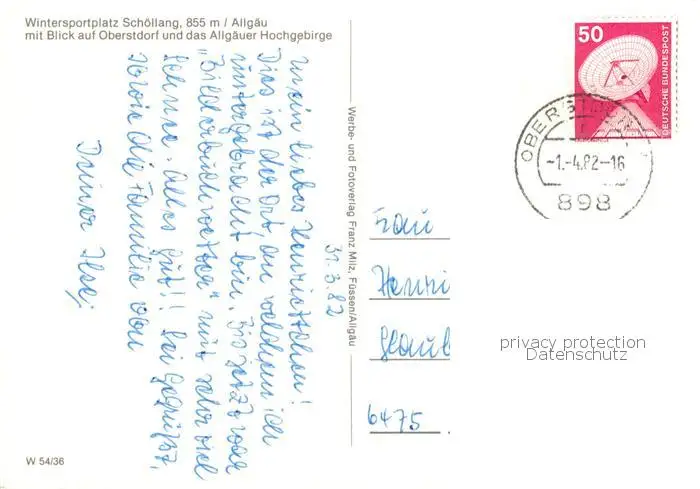 Wintersportplatz Schöllang, 855 m / Allgäu
mit Blick auf Oberstdorf und das Allgäuer Hochgebirge
31.3.82
Mein liebes Henriettchen!
Dies ist der Ort an welchem ich
untergebracht bin. Bis jetzt war
"Bilderbuchwetter" mit sehr viel
Schnee. Alles gut!! Sei gegrüßt,
sowie die Familie von
Deiner Ilse
Werbe- und Fotoverlag Franz Milz, Füssen/Allgäu
50
DEUTSCHE BUNDESPOST
OBERST
-1.-4.82-16
898
Frau
Henri
Glaub
6475
privacy protection
Datenschutz
W 54/36